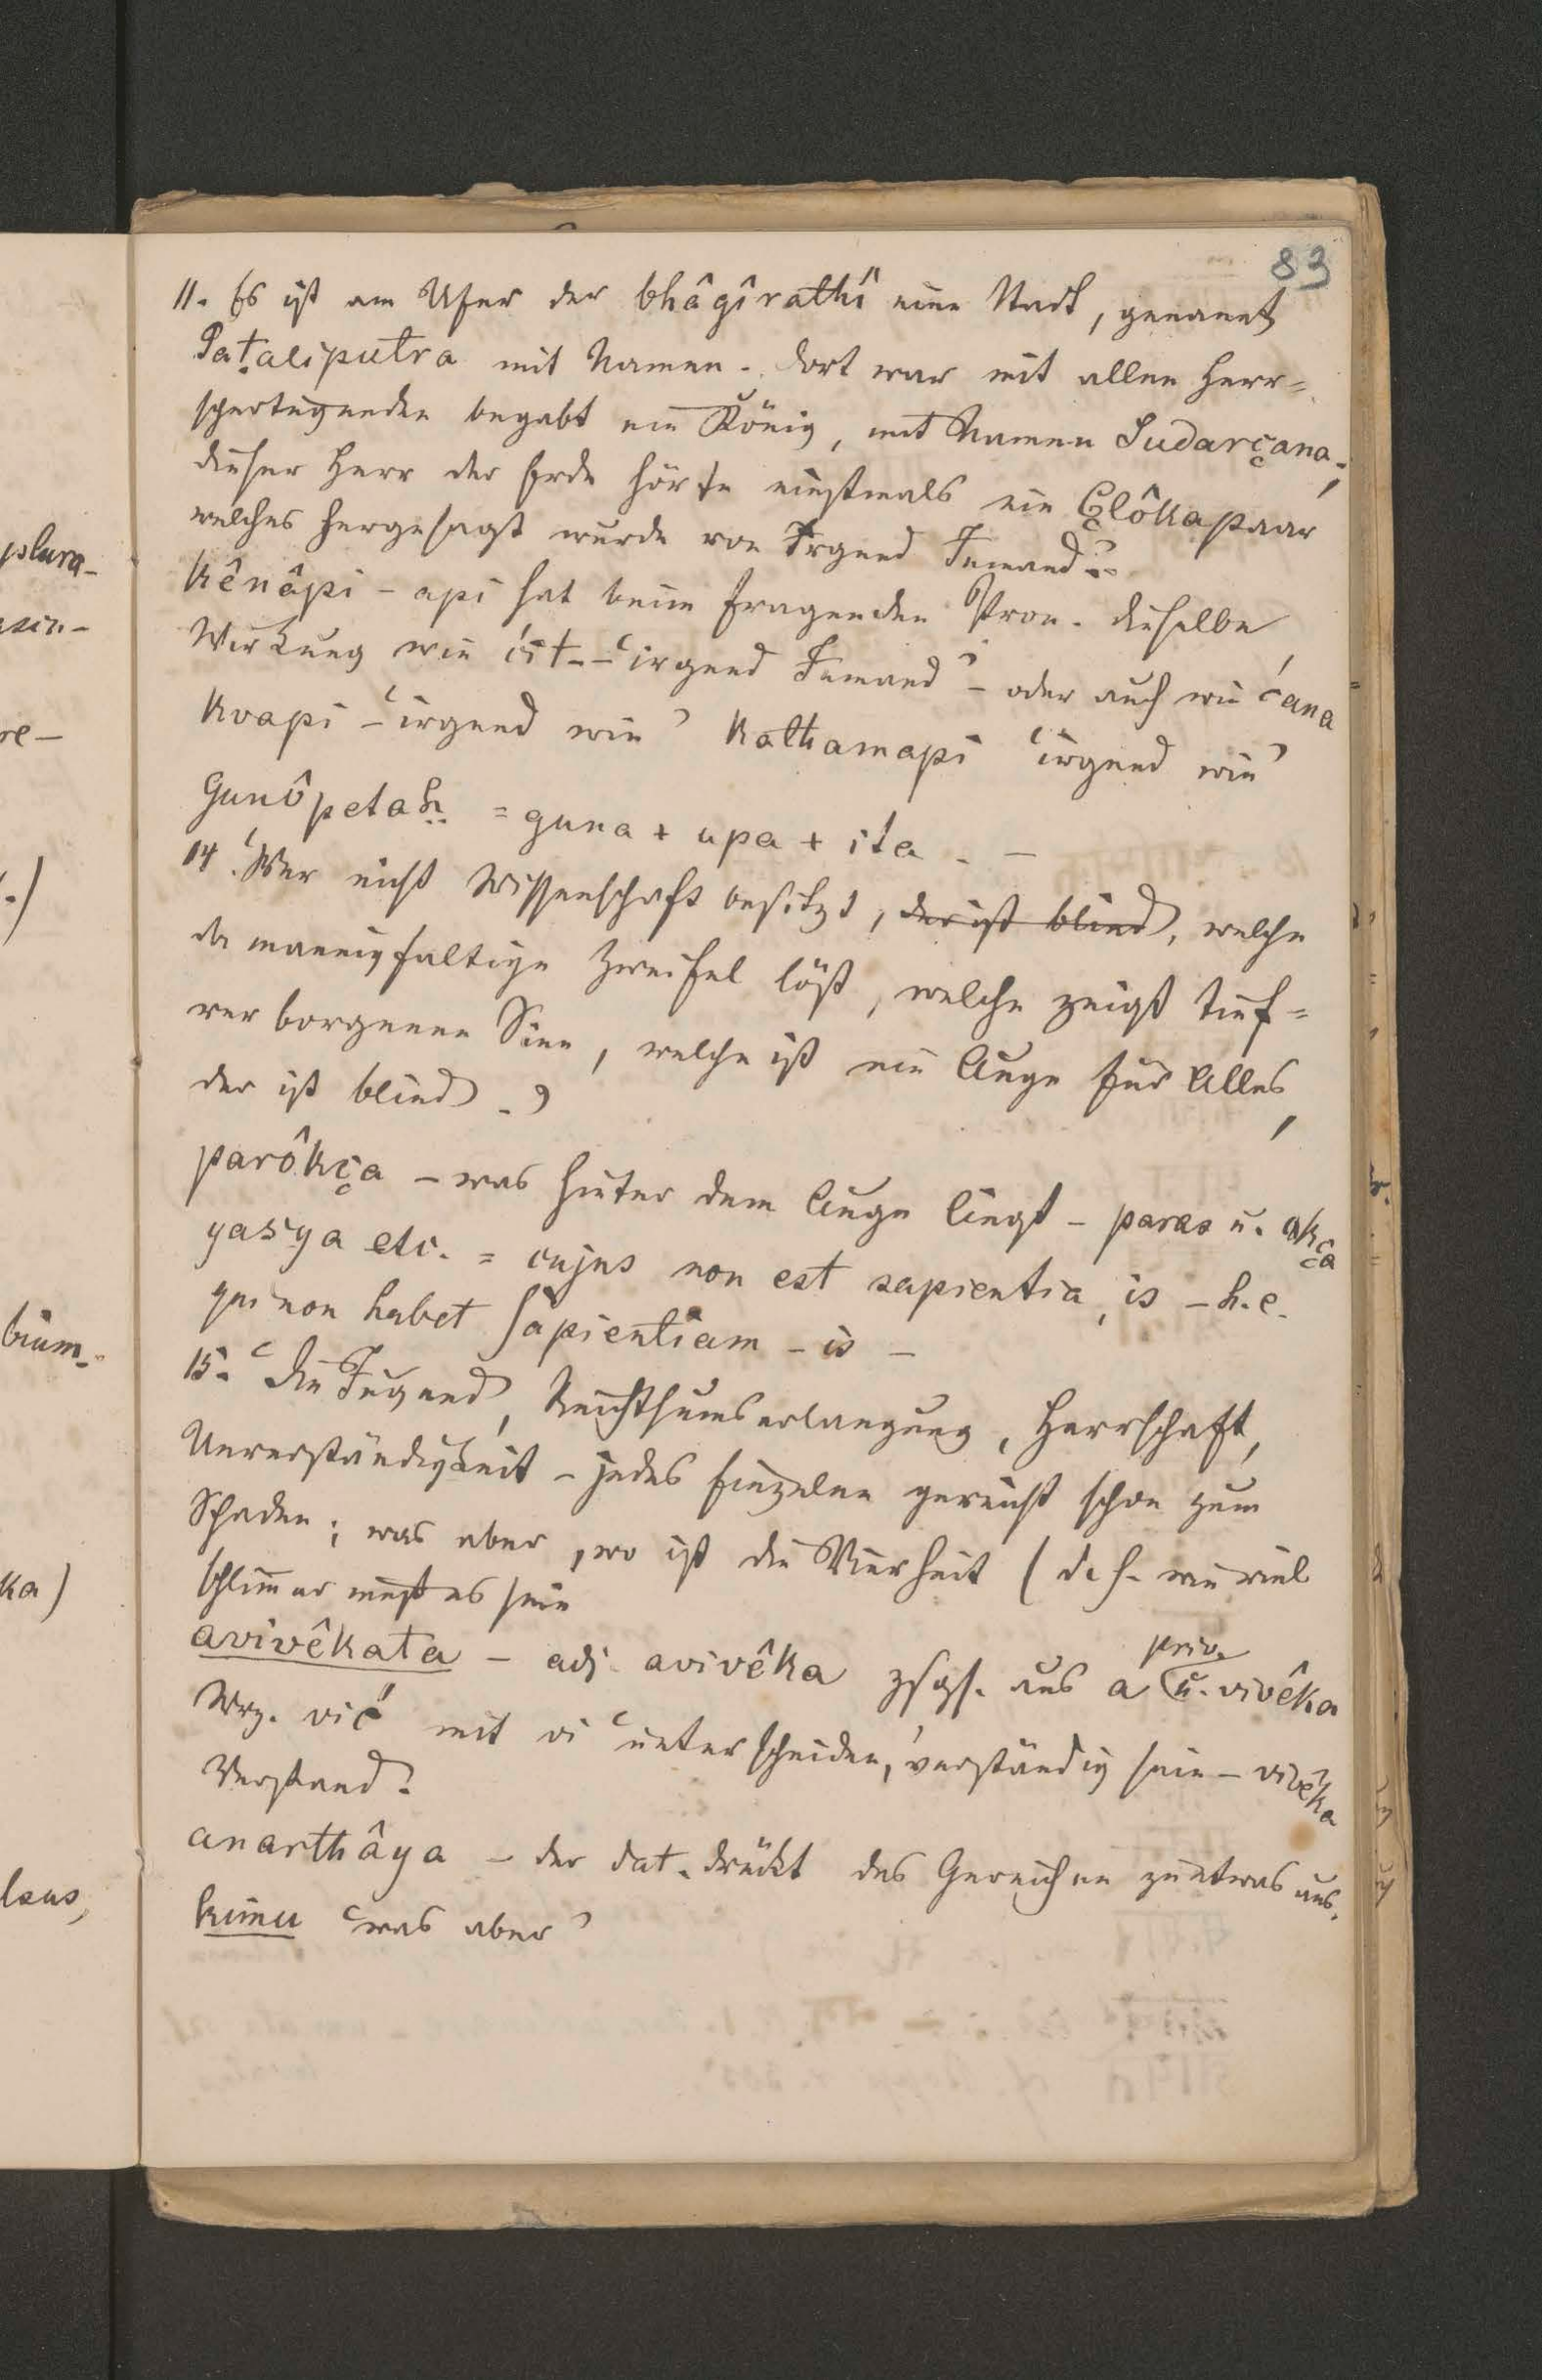 83
11. Es ist am Ufer der bhâgîrathî eine Stadt, genannt
Paṭaliputra mit Namen. Dort war mit allen Herr=
schertugenden begabt ein König, mit Namen Sudarçana;
dieser Herr der Erde hörte einstmals ein Çlôkapaar,
welches hergesagt wurde von Irgend Jemand.
kênâpi – api hat beim fragenden Pron. dieselbe
Wirkung wie ćit – ‘irgend Jemand’ – oder auch wie ćana
kvapi – ‘irgend wie’ kathamapi ‘irgend wie’
Gunôpetaḥ = guna + upa + ita . –
14. ‘Wer nicht Wissenschaft besitzt, der ist blind, welche
da mannigfaltige Zweifel löst, welche zeigt tief=
verborgenen Sinn, welche ist ein Auge für Alles,
der ist blind.’
parôkça – was hinter dem Auge liegt – paras u. akça
yasya etc. = cujus non est sapientia, is – h.e.
qui non habet sapientiam – is –
15. ‘Die Jugend, Reichthumserlangung, Herrschaft,
Unverständigkeit – jedes Einzelne gereicht schon zum
Schaden; was aber, wo ist die Vierheit (d.h. wie viel
schlimmer muß es sein
avivêkata – adj. avivêka zsgs. aus a priv. u. vivêka
Wrz. vić mit vi ‘unterscheiden, verständig sein – vivêka
Verstand.
anarthâya – der dat. drückt das Gereichen zu etwas aus.
kimu ‘was aber’
plura-
re-
bium-
ka)
laus,